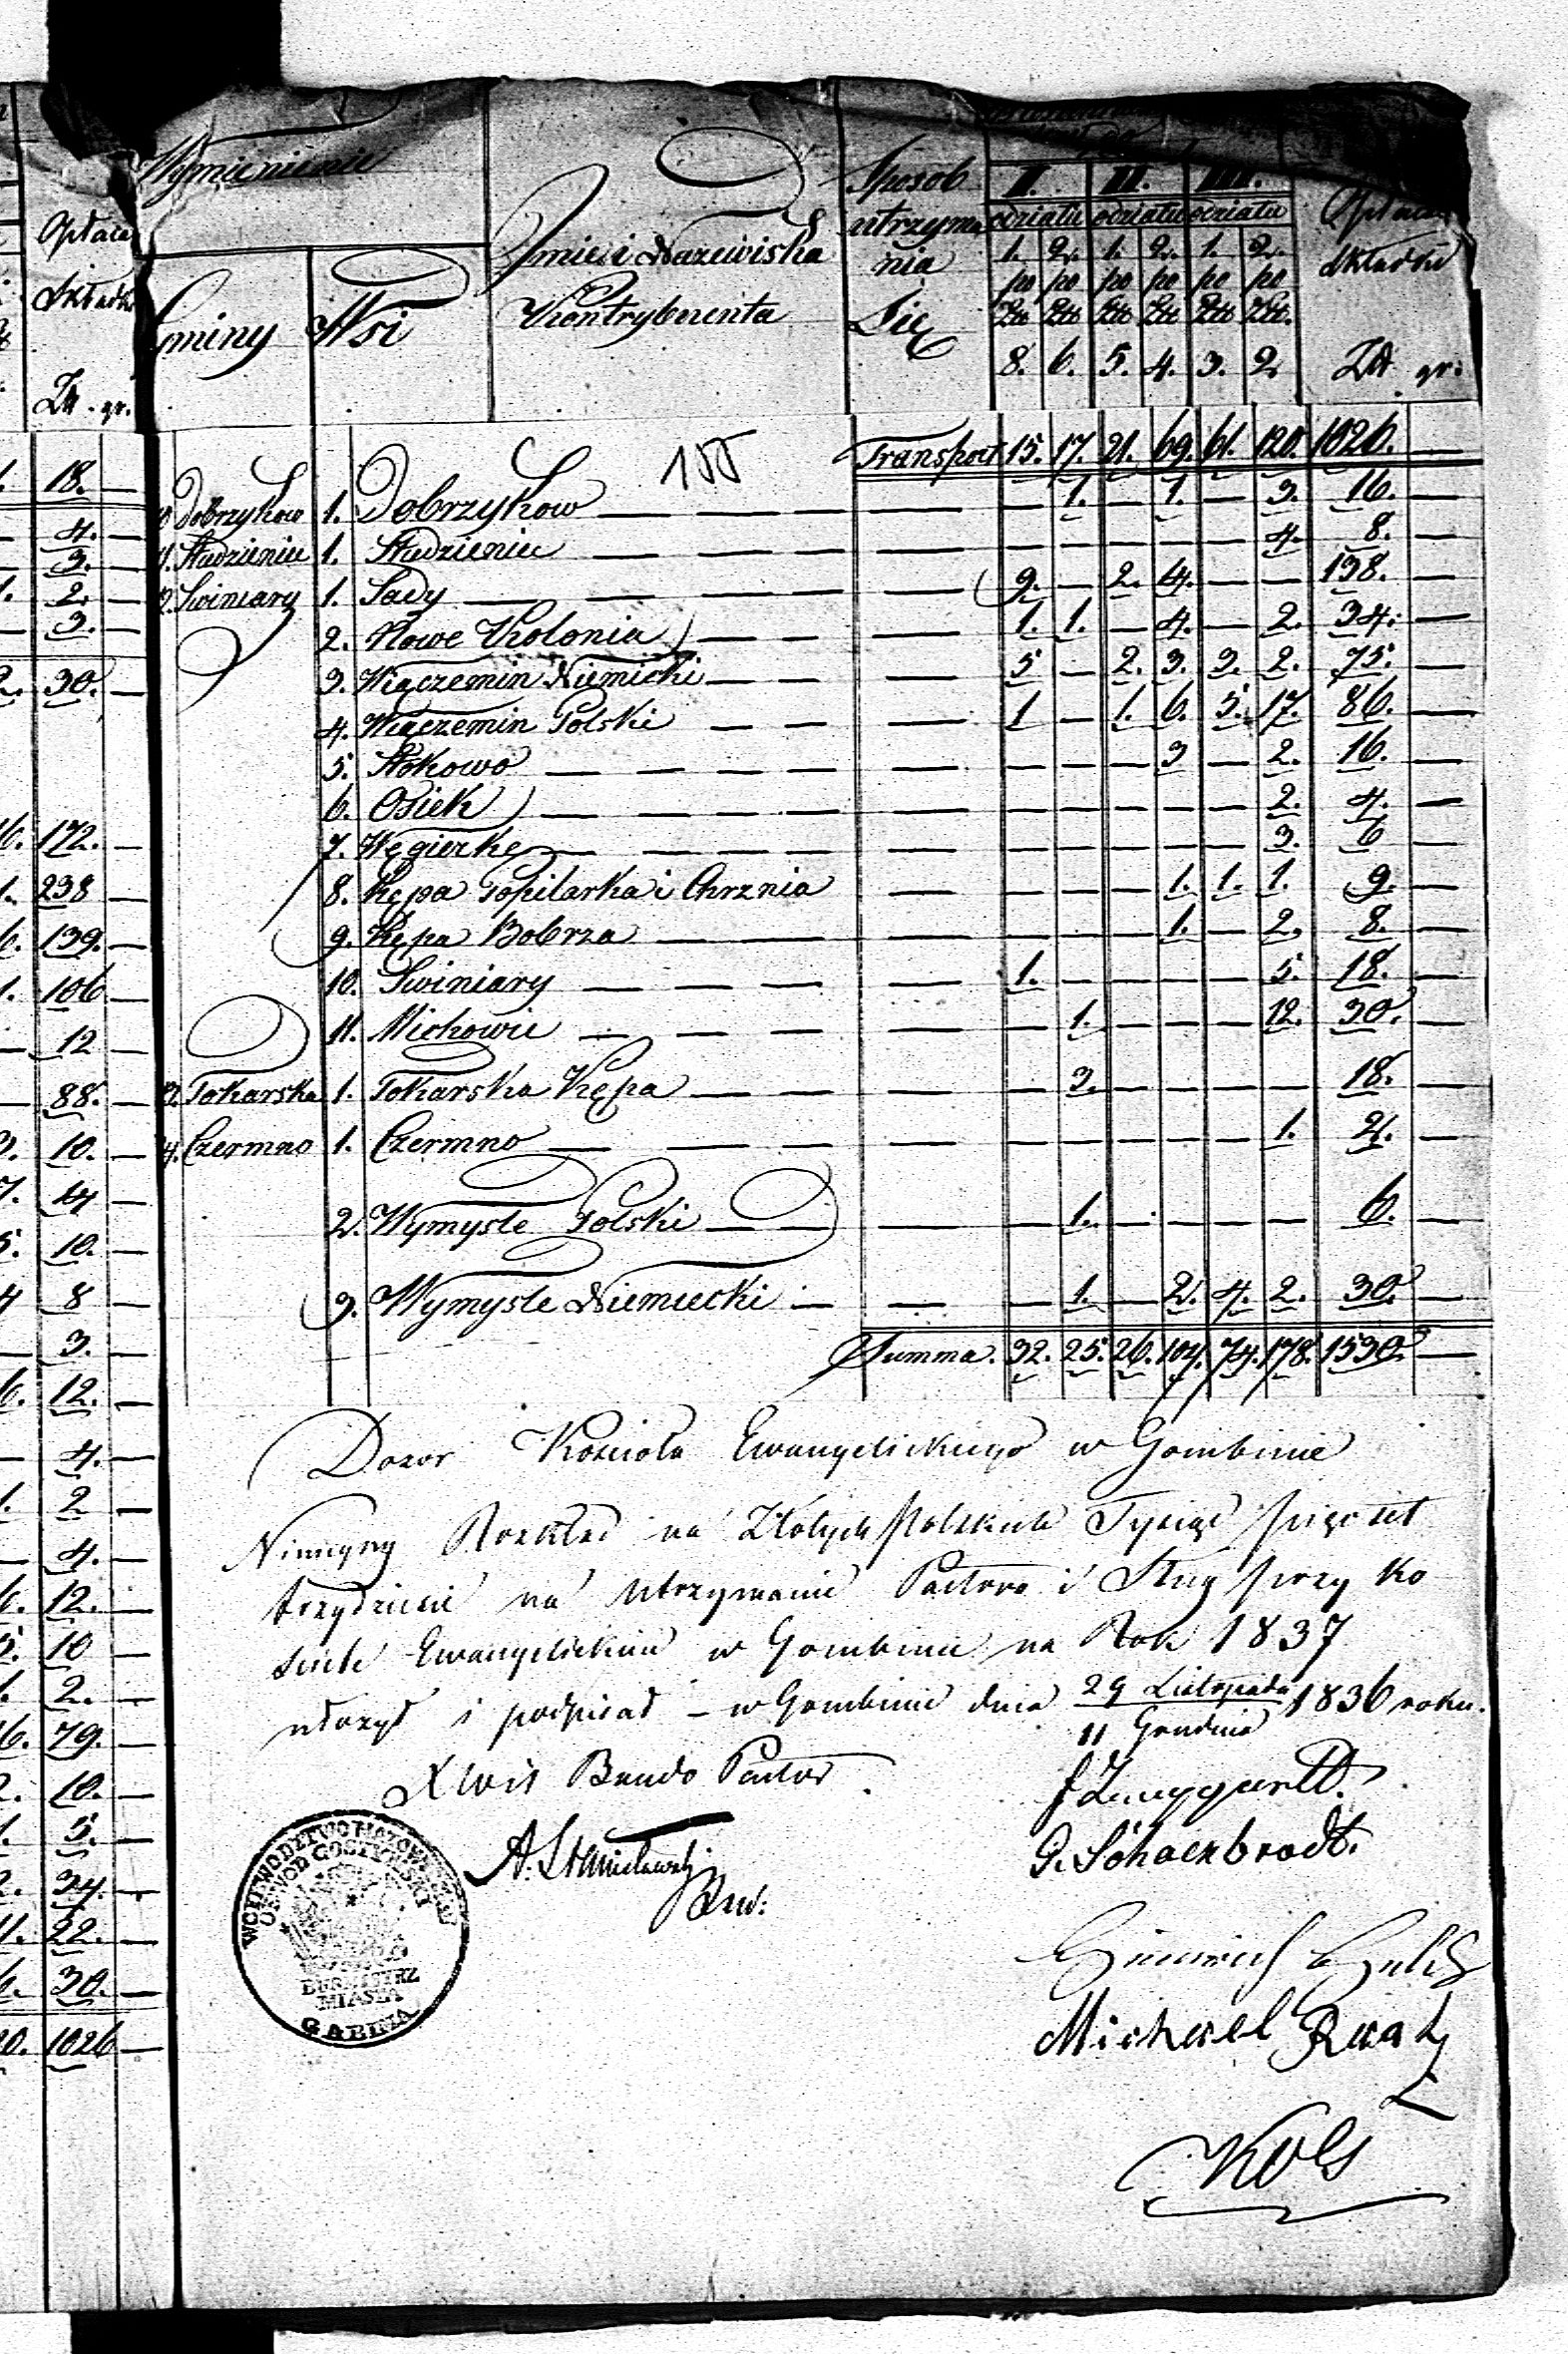 Opłata
Składki
Zł. gr.
18. —
4. —
3. —
2. —
3. —
30. —
172. —
238 —
139. —
106 —
12 —
88. —
10. —
14 —
10. —
8 —
3. —
12. —
4. —
2 —
4. —
12. —
10 —
2. —
79. —
10. —
5. —
34. —
22. —
30. —
1026 —
Wymienienie
Gminy Wsi
Jmie i Nazwiska
Kontrybuenta
Sposob
utrzyma
nia
Się
II. III.
odziału odziału odziału
1. 2. 1. 2. 1. 2.
po po po po po po
Złt Złt Złt Złt Złt Złt.
8. 6. 5. 4. 3. 2.
Opłata
Składki
Zł gr.
155
Transport 15. 17. 21. 69. 61. 120. 1026. —
Dobrzykow 1. Dobrzykow — 1. — 1. — 3. 16. —
Studzieniec 1. Studzieniec — — — — — 4. 8. —
Swiniary 1. Sady 9. — 2. 4. — — 138. —
2. Nowe Kolonia 1. 1. — 4. — 2. 34. —
3. Wiączemin Niemicki 5 — 2. 3. 3. 2. 75. —
4. Wiączemin Polski 1 — 1. 6. 5. 17. 86. —
5. Stokowo — — — 3 — 2. 16. —
6. Osiek — — — — — 2. 4. —
7. Węgierkę — — — — — 3. 6 —
8. Kępa Popilarka i Chrznia — — — 1. 1. 1. 9. —
9. Kępa Bobrza — — — 1. — 2. 8. —
10. Swiniary 1. — — — — 5. 18. —
11. Nichowie — 1. — — — 12. 30. —
Tokarska 1. Tokarska Kępa — 3. — — — — 18. —
Czermno 1. Czermno — — — — — 1. 2. —
2. Wymysle Polski — 1. — — — — 6. —
3. Wymysle Niemiecki — 1. — 2. 4. 2. 30. —
Summa. 32. 25. 26. 104. 74. 178. 1530. —
Dozor Kościoła Ewangelickiego w Gombinie
Ninieyszy Rozkład na Złotych Polskich Tysiąc pięćset
trzydzieści na Utrzymanie Pastora i Sług przy Ko
sciele Ewangelickim w Gombinie na Rok 1837
ułożył i podpisał – w Gombinie dnia 29 Listopada / 11 Grudnia 1836 roku.
Xwis Bando Pastor
A. Stanisławski
Bur:
G. Schaexbrodt.
Michael Raatz
Kols
WOJEWODZTWO MAZOWIECKIE
OBWOD GOSTYNSKI
BURMISTRZ
MIASTA
GABINA